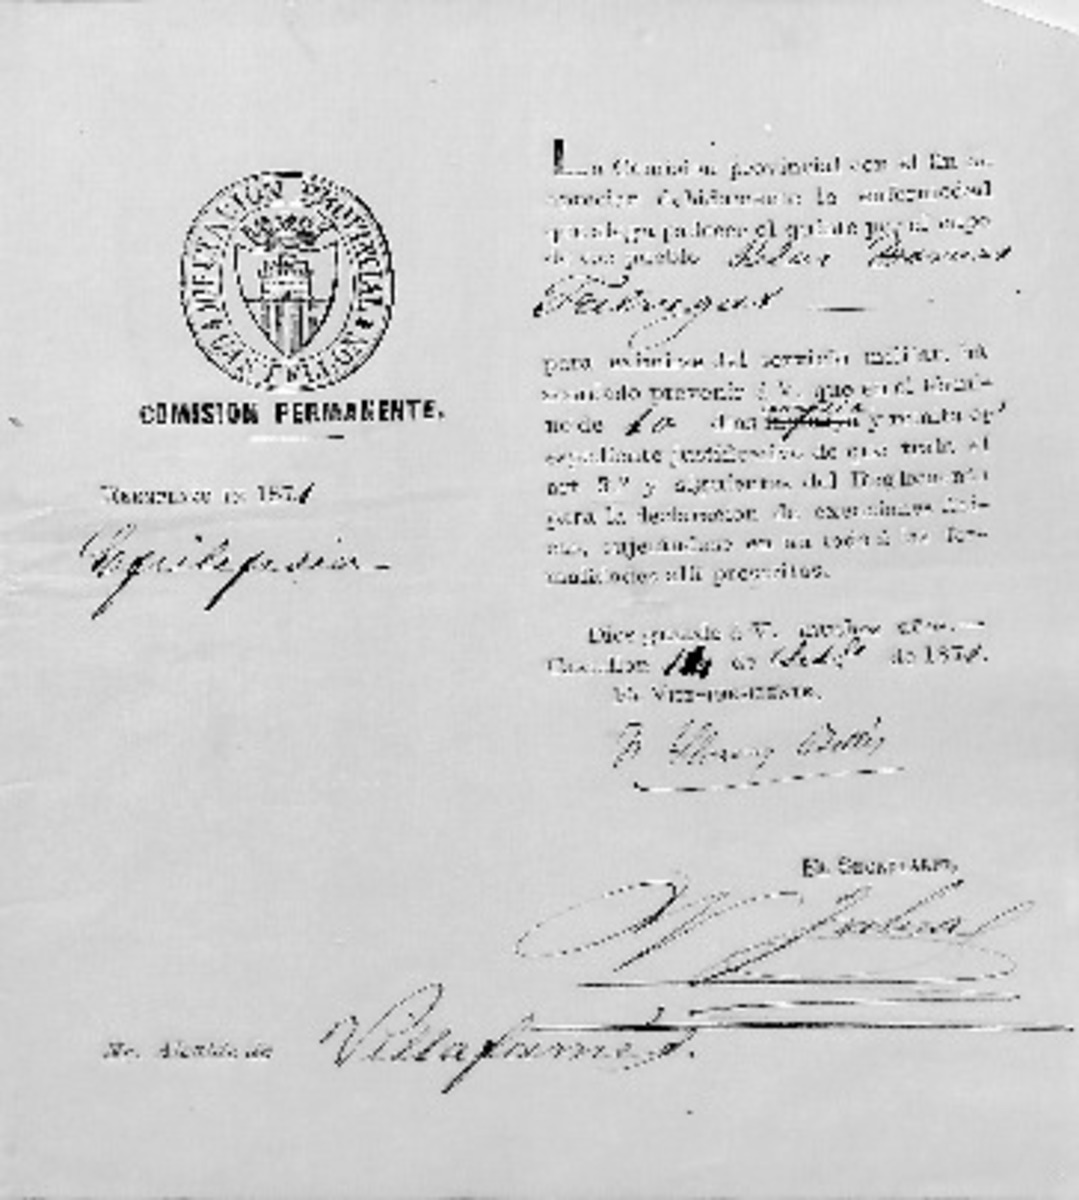 DIPUTACION PROVINCIAL
CASTELLON
COMISION PERMANENTE.
Reemplazo de 1871
La Comision provincial con el fin de
conocer debidamente la enfermedad
que alega padecer el quinto por el cupo
de ese pueblo Blas
para eximirse del servicio militar, ha
acordado prevenir á V. que en el térmi-
no de 10 dias y remita el
expediente justificativo de que trata el
art 5.º y siguientes del Reglamento
para la declaracion de exenciones físi-
cas, sujetándose en un todo á las for-
malidades allí prescritas.
Dios guarde á V. muchos años.—
Castellon de de 1871.
El Vice-presidente,
El Secretario,
Sr. Alcalde de Villafamés.